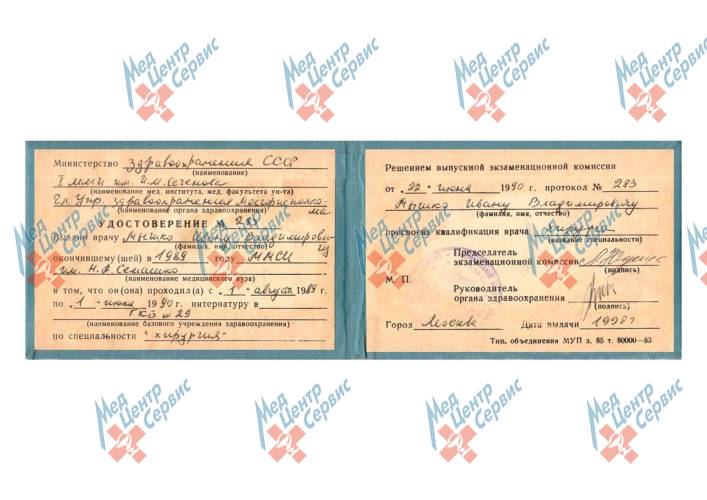 Мед Центр Сервис
Мед Центр Сервис
Мед Центр Сервис
Мед Центр Сервис
Министерство здравоохранения СССР
(наименование)
I ММИ им. И.М. Сеченова
(наименование мед. института, мед. факультета ун-та)
Гл. Упр. здравоохранения Мосгорисполкома
(наименование органа здравоохранения)
УДОСТОВЕРЕНИЕ № 283
Выдано врачу Мышко Ивану Владимировичу
(фамилия, имя, отчество)
окончившему (шей) в 1989 году ММСИ
им. Н.А. Семашко
(наименование медицинского вуза)
в том, что он (она) проходил (а) с „1“ август 1989 г.
по „1“ июня 1990 г. интернатуру в
ГКБ № 29
(наименование базового учреждения здравоохранения)
по специальности "хирургия"
Решением выпускной экзаменационной комиссии
от „22“ июня 1990 г. протокол № 283
Мышко Ивану Владимировичу
(фамилия, имя, отчество)
присвоена квалификация врача хирурга
(название специальности)
Председатель
экзаменационной комиссии
(подпись)
М. П.
Руководитель
органа здравоохранения
(подпись)
Город Москва Дата выдачи 1998 г
Тип. объединения МУП з. 85 т. 80000—83
Мед Центр Сервис
Мед Центр Сервис
Мед Центр Сервис
Мед Центр Сервис